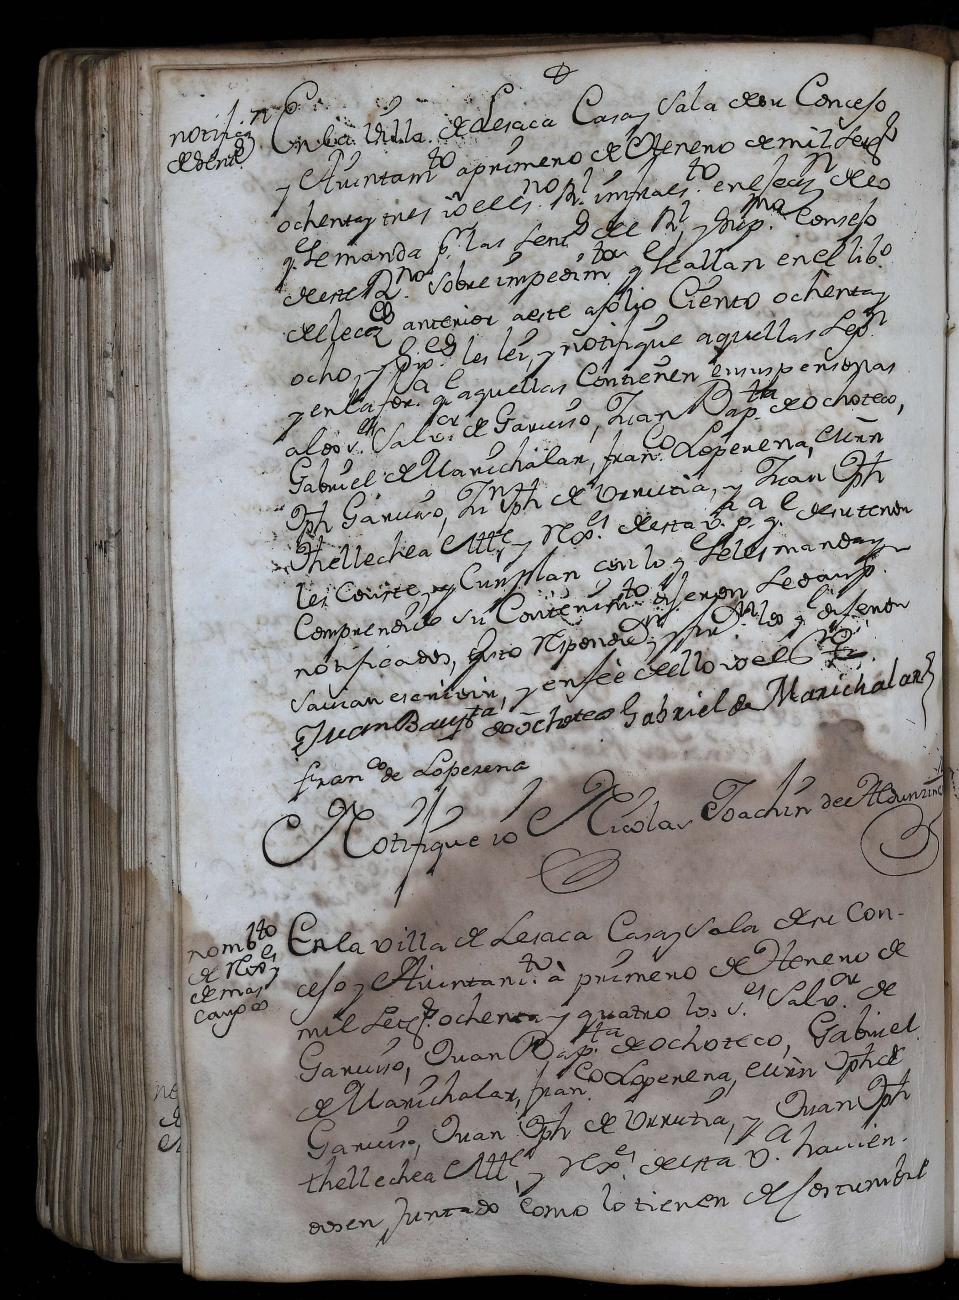 notifizn
de sent.
En la Villa de Lesaca Casa y Sala de su Consejo
y Aiuntamto a primero de Henero de mil Setecs
ochenta y tres io el essno Rl. infraesto en execn de lo
q. se manda pr. las Sentd. de Rl. y Supmo Consejo
de este Rno sobre impedimtos q. se allan en el libº
de elecs anterior a este a folio Ciento ochenta y
ocho, y les lei, y notifique aquellas
y en la forma q. aquellas Contienen en sus personas
a los ses Salvor de Garviso, Juan Bapta de ochoteco,
Gabriel de Marichalar, franco Loperena, Mrn
Jph Garviso, Jn Jph de Urrutia, y Juan Jph
thellechea Allle y Rexes de esta va pa qe de su tenor
les Conste, y Cumplan con lo q se les manda y
Comprendido su Contenimto dijeron Se dan pr.
notificados, esto respondieron, y firmn los q. dijeron
savian escrivir, y en feè de ello io el Essno
Juan Bauysta de ochoteco Gabriel de Marichalar
franco de Loperena
Notifique io Nicolas Joachin de Aldunzin
nombto
de Rexes y
demas
cargos
En la villa de Lesaca Casa y Sala de su Con-
cejo y Aiuntamto à primero de Henero de
mil Setecs. ochenta y quatro los ses Salvor de
Garviso, Juan Bapta de ochoteco, Gabriel
de Marichalar, franco Loperena, Mrn Jph de
Garviso, Juan Jph de Urrutia, y Juan Jph
thellechea Allle y Rexes de esta va havien-
dosen Juntado Como lo tienen de Costumbre